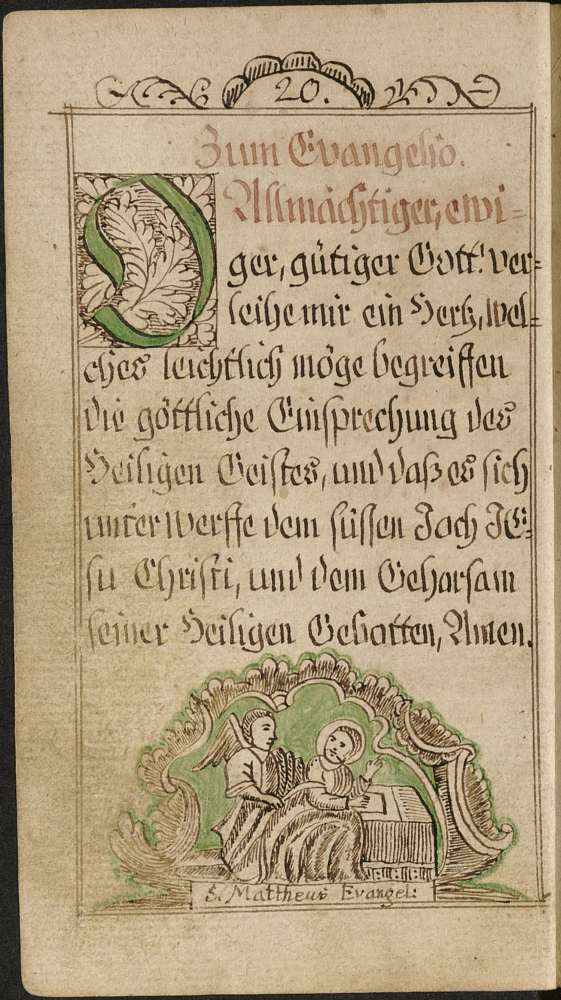 20.
Zum Evangelio.
O Allmächtiger, ewi=
ger, gütiger Gott! ver=
leihe mir ein Hertz, wel=
ches leichtlich möge begreiffen
die göttliche Einsprechung des
Heiligen Geistes, und daß es sich
unterwerffe dem süssen Joch JE=
su Christi, und dem Gehorsam
seiner Heiligen Gebotten, Amen.
S. Mattheus Evangel: